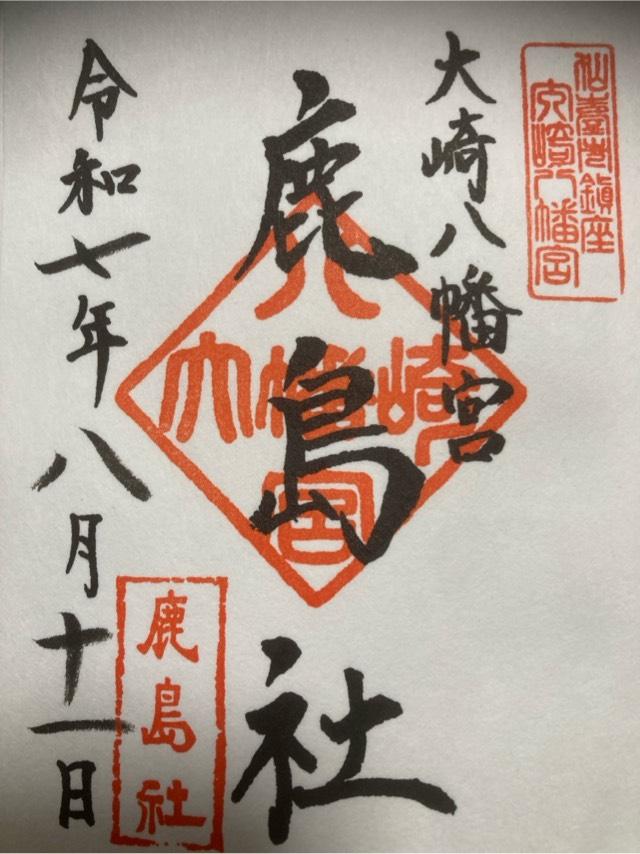 仙臺市鎮座
大崎八幡宮
大崎八幡宮
鹿島社
八
大幡崎
宮
鹿島社
令和七年八月十一日